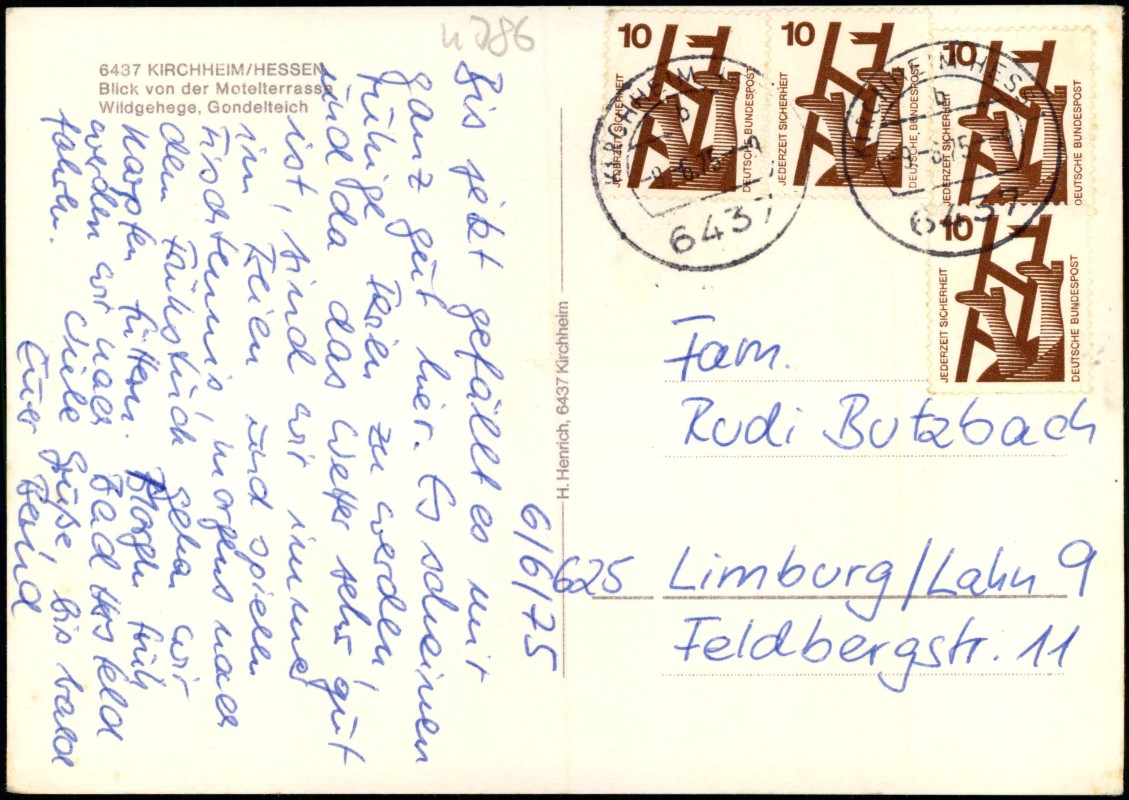 u 786
6437 KIRCHHEIM/HESSEN
Blick von der Motelterrasse
Wildgehege, Gondelteich
6/6/75
Bis jetzt gefällt es mir
ganz gut hier. Es scheinen
ruhige Ferien zu werden!
Und da das Wetter sehr gut
ist, sind wir immer
im Freien und spielen
Tischtennis, morgens nach
dem Frühstück gehn wir
Karpfen füttern. Morgen früh
werden wir nach Bad Hersfeld
fahren. Viele Grüße bis bald
Euer Bernd
H. Henrich, 6437 Kirchheim
10
JEDERZEIT SICHERHEIT
DEUTSCHE BUNDESPOST
10
JEDERZEIT SICHERHEIT
DEUTSCHE BUNDESPOST
10
JEDERZEIT SICHERHEIT
DEUTSCHE BUNDESPOST
10
JEDERZEIT SICHERHEIT
DEUTSCHE BUNDESPOST
KIRCHHEIM
b
6437
KIRCHHEIM HESS
b
6437
Fam.
Rudi Butzbach
625 Limburg/Lahn 9
Feldbergstr. 11